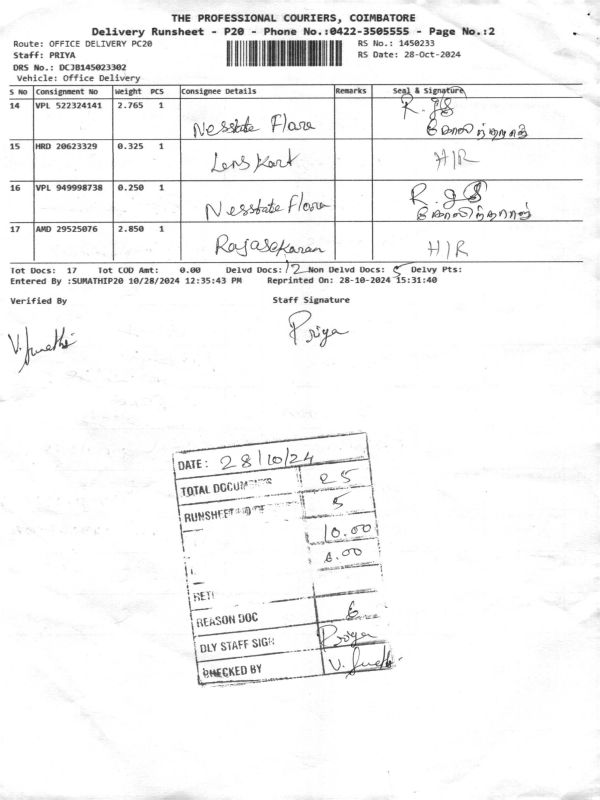 THE PROFESSIONAL COURIERS, COIMBATORE
Delivery Runsheet - P20 - Phone No.:0422-3505555 - Page No.:2
Route: OFFICE DELIVERY PC20 RS No.: 1450233
Staff: PRIYA RS Date: 28-Oct-2024
DRS No.: DCJB145023302
Vehicle: Office Delivery
S No Consignment No Weight PCS Consignee Details Remarks Seal & Signature
14 VPL 522324141 2.765 1 Nesstate Flora
15 HRD 20623329 0.325 1 Lenskart H/R
16 VPL 949998738 0.250 1 Nesstate Flora
17 AMD 29525076 2.850 1 Rajasekaran H/R
Tot Docs: 17 Tot COD Amt: 0.00 Delvd Docs: 12 Non Delvd Docs: 5 Delvy Pts:
Entered By :SUMATHIP20 10/28/2024 12:35:43 PM Reprinted On: 28-10-2024 15:31:40
Verified By Staff Signature
Priya
DATE: 28/10/24
TOTAL 25
RUNSHEET 5
10.00
6.00
REASON DOC 6
DLY STAFF SIGN Priya
CHECKED BY